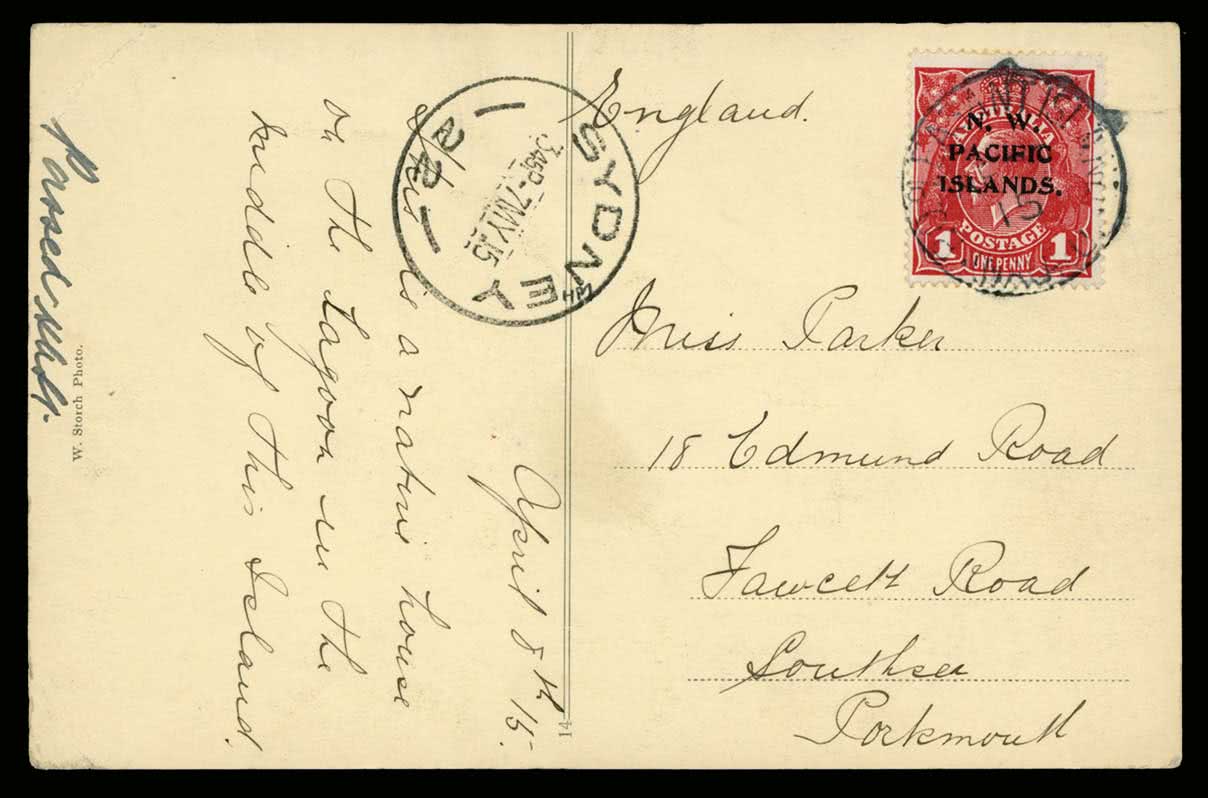 April 8th 15.
This is a native house
on the Lagoon in the
middle of this Island.
Passed
W. Storch Photo.
14
SYDNEY
22
345P-7MY.15
HM
England.
AUSTRALIA
N. W.
PACIFIC
ISLANDS.
15
POSTAGE
1 ONE PENNY 1
Miss Parker
18 Edmund Road
Fawcett Road
Southsea
Portsmouth